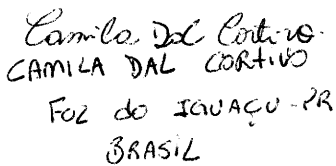 Camila Dal Cortivo.
CAMILA DAL CORTIVO
FOZ do IGUAÇU - PR
BRASIL